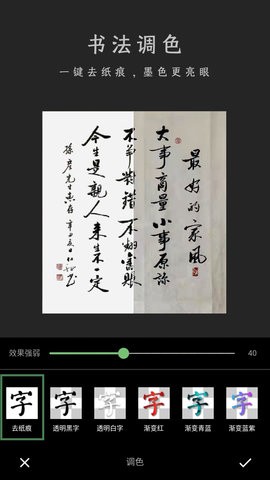 书法调色
一键去纸痕，墨色更亮眼
最好的家风
大事商量小事原谅
不争對错不翻舊账
今生是親人来生不一定
效果强弱
40
字 字 字 字 字 字
去纸痕 透明黑字 透明白字 渐变红 渐变青蓝 渐变蓝紫
调色